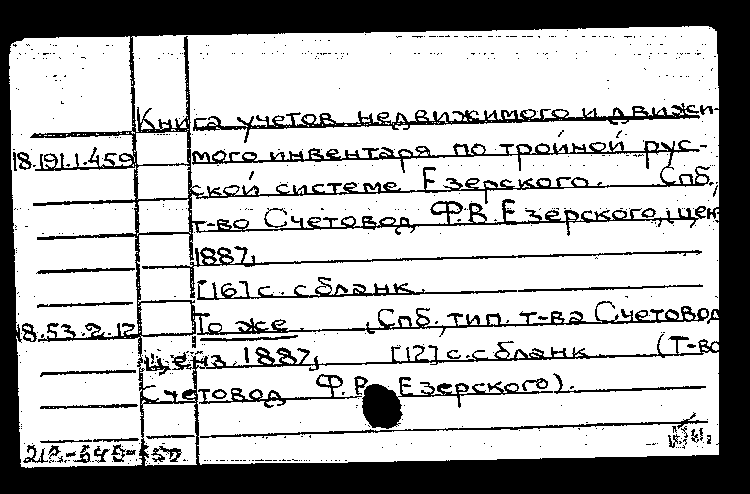 Книга учетов недвижимого и движи-
18.191.1.459 мого инвентаря по тройной рус-
ской системе Езерского. Спб.,
т-во Счетовод Ф.В. Езерского, цен
1887,
[16] с. с бланк.
18.53.2.12 То же. Спб., тип. т-ва Счетовод
ценз. 1887, [12] с. с бланк (Т-во
Счетовод Ф.В. Езерского).